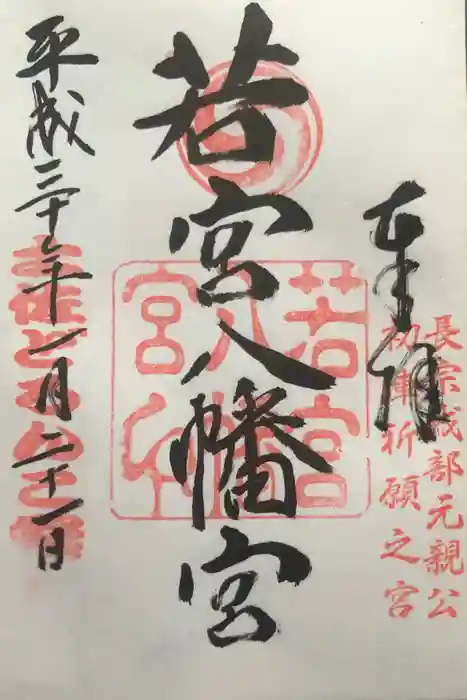 奉拝
長宗我部元親公
初陣祈願之宮
若宮八幡宮
平成三十年十一月二十一日